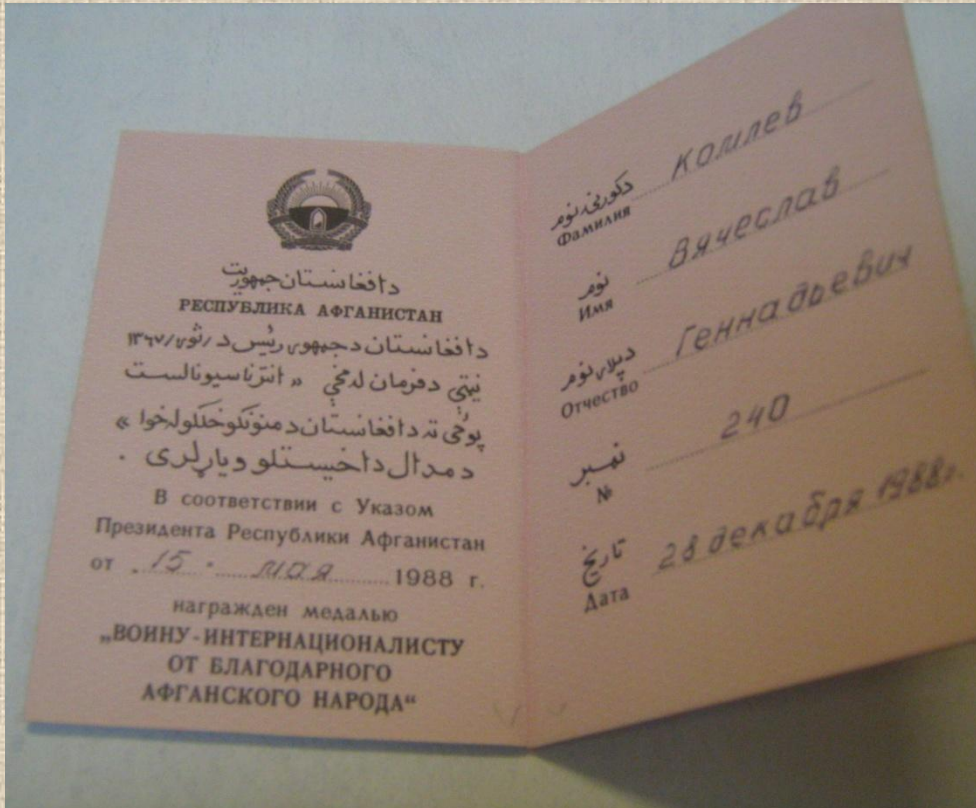 دافغانستان جمهوریت
РЕСПУБЛИКА АФГАНИСТАН
دافغانستان دجمهور رئیس د /ثور/ ۱۳۶۷
نیټې دفرمان له مخې « انترناسیونالست
پوځی ته دافغانستان دمنونکو خلکو له خوا »
دمدال داخیستلو ویاړ لری .
В соответствии с Указом
Президента Республики Афганистан
от 15 мая 1988 г.
награжден медалью
„ВОИНУ-ИНТЕРНАЦИОНАЛИСТУ
ОТ БЛАГОДАРНОГО
АФГАНСКОГО НАРОДА“
دکورنۍ نوم
Фамилия Комлев
نوم
Имя Вячеслав
دپلار نوم
Отчество Геннадьевич
نمبر
№ 240
تاریخ
Дата 28 декабря 1988г.